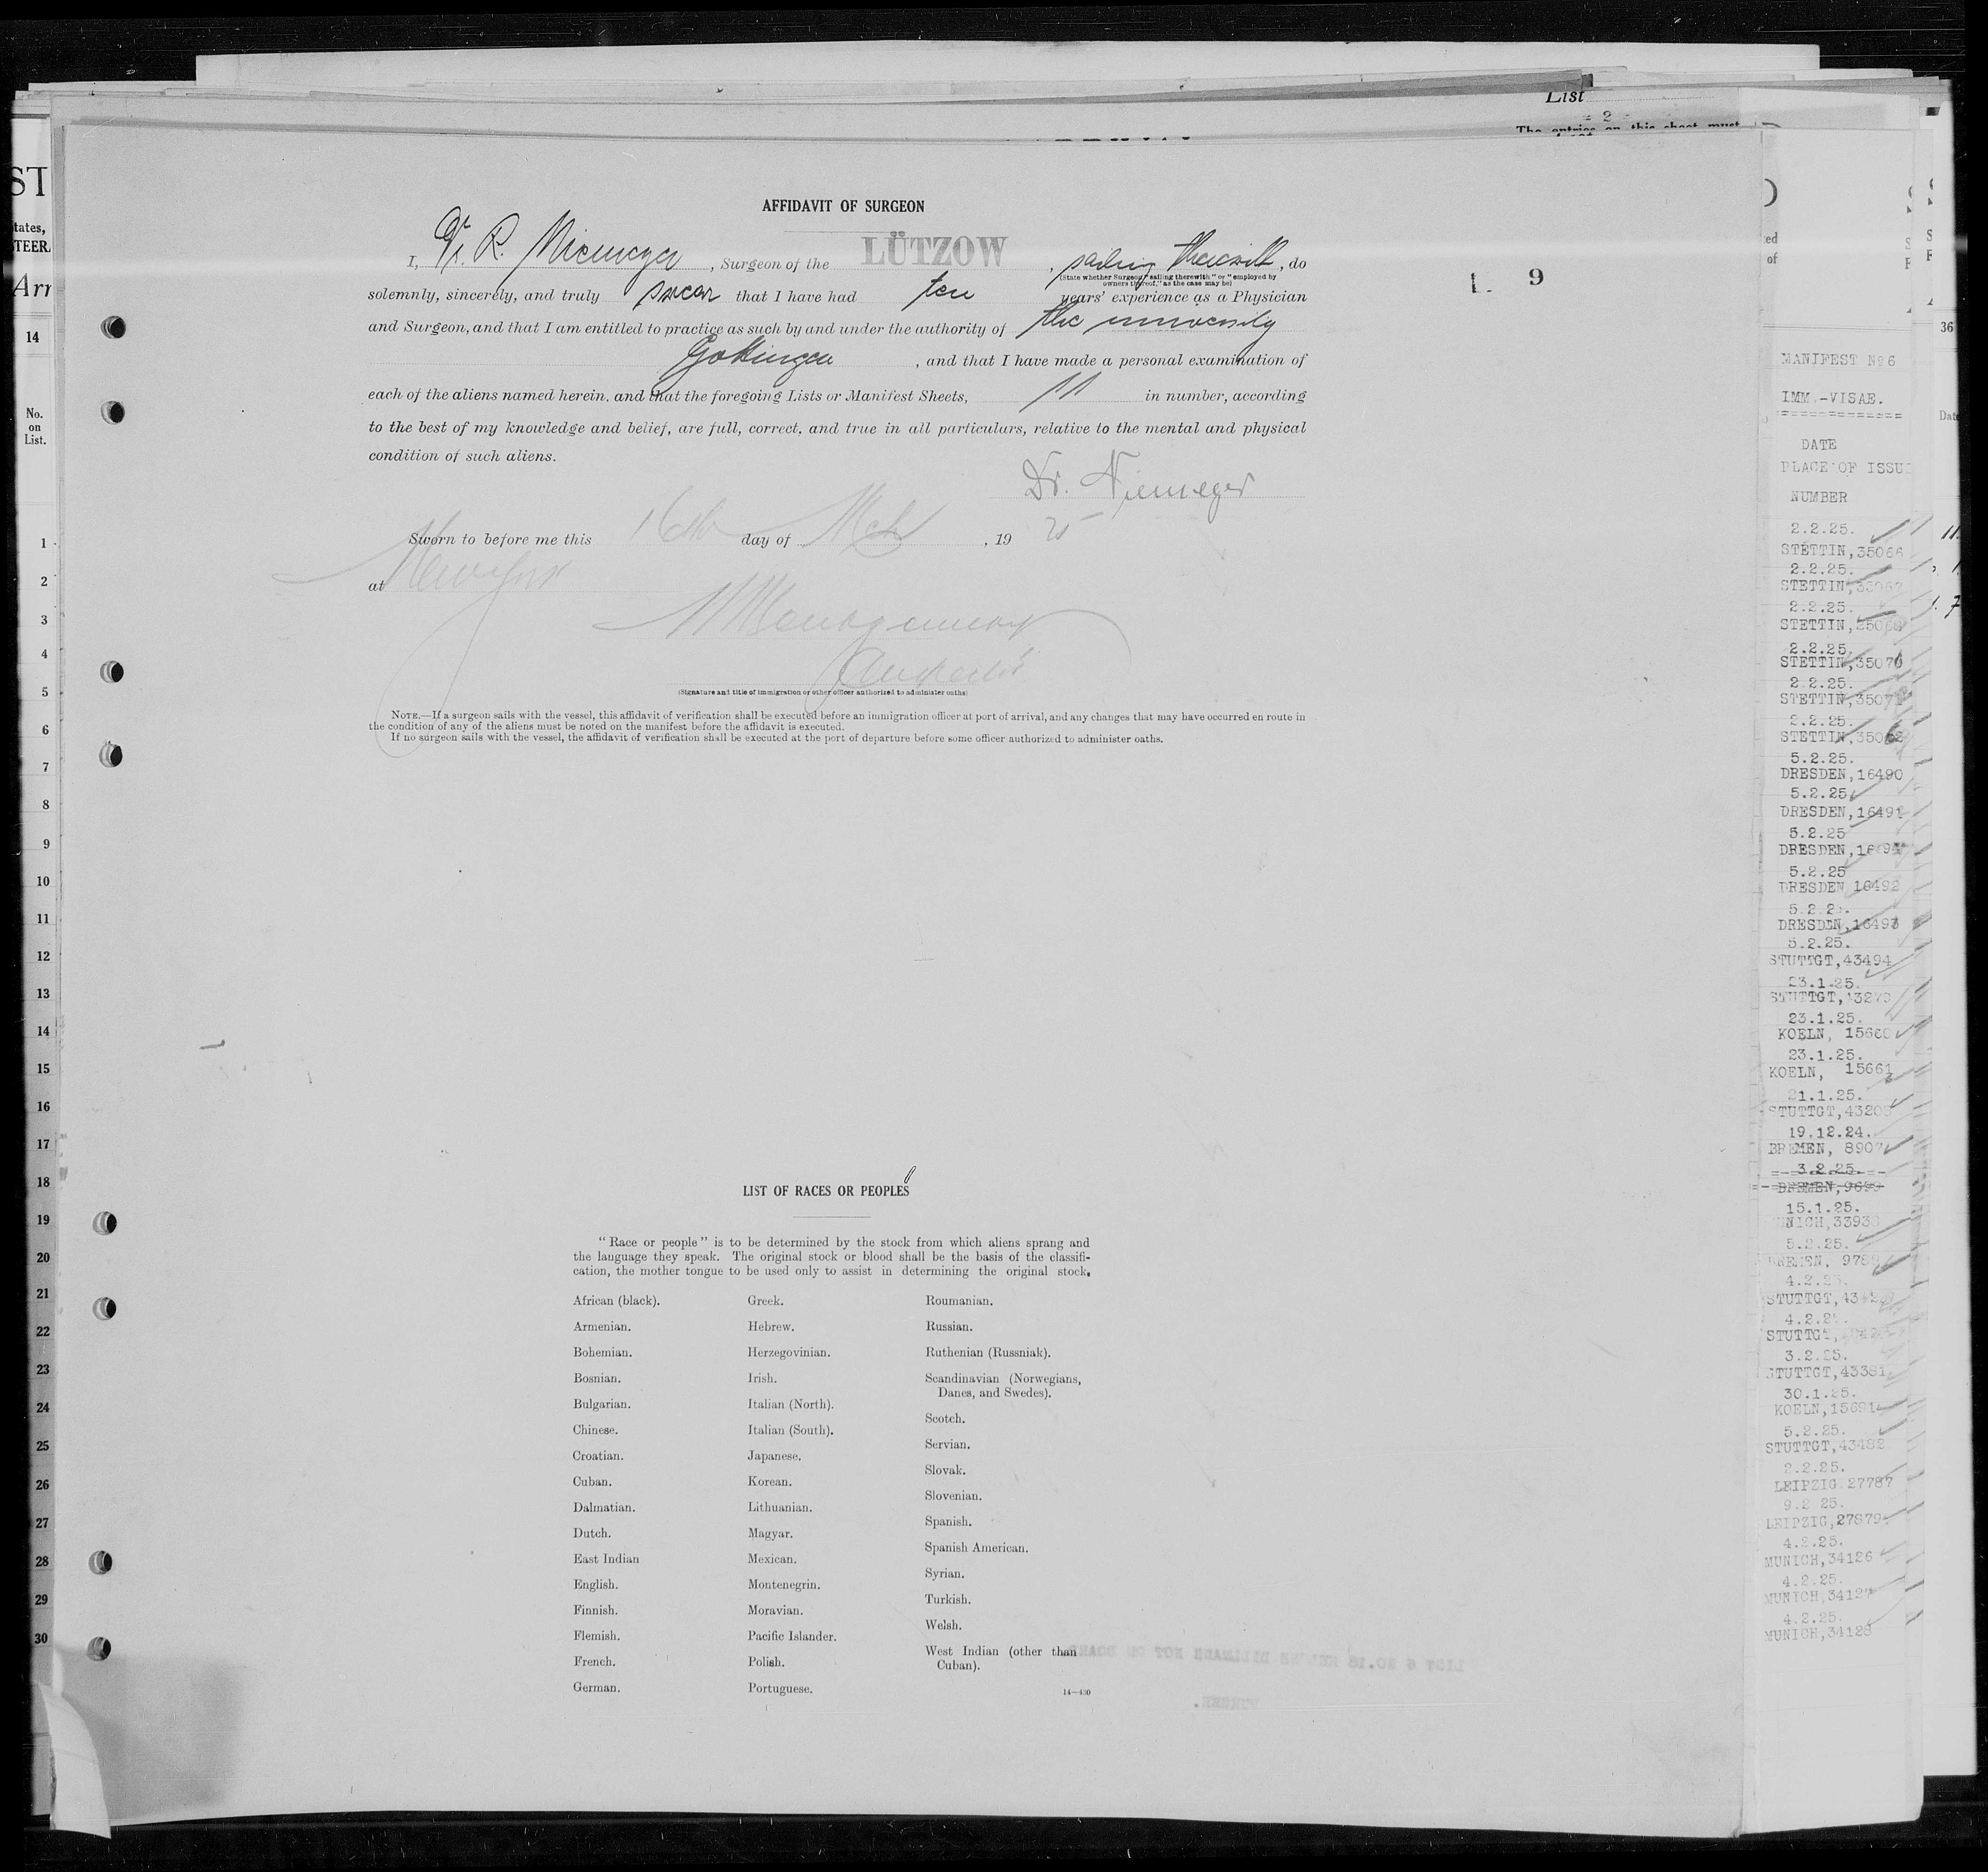 List
- 2 -
The entries on this sheet must
ST
tates,
TEER
Arr
14
No.
on
List.
1
2
3
4
5
6
7
8
9
10
11
12
13
14
15
16
17
18
19
20
21
22
23
24
25
26
27
28
29
30
AFFIDAVIT OF SURGEON
I, Dr. R. Niemeyer, Surgeon of the LÜTZOW, sailing therewith, do
(State whether Surgeon "sailing therewith" or "employed by
owners thereof," as the case may be)
solemnly, sincerely, and truly swear that I have had ten years' experience as a Physician
and Surgeon, and that I am entitled to practice as such by and under the authority of the university
Gottingen, and that I have made a personal examination of
each of the aliens named herein, and that the foregoing Lists or Manifest Sheets, 11 in number, according
to the best of my knowledge and belief, are full, correct, and true in all particulars, relative to the mental and physical
condition of such aliens.
Dr. Niemeyer
Sworn to before me this 16th day of Mch, 19 25
at New York
Montgomery
(Signature and title of immigration or other officer authorized to administer oaths)
NOTE.—If a surgeon sails with the vessel, this affidavit of verification shall be executed before an immigration officer at port of arrival, and any changes that may have occurred en route in
the condition of any of the aliens must be noted on the manifest before the affidavit is executed.
If no surgeon sails with the vessel, the affidavit of verification shall be executed at the port of departure before some officer authorized to administer oaths.
9
LIST OF RACES OR PEOPLES
"Race or people" is to be determined by the stock from which aliens sprang and
the language they speak. The original stock or blood shall be the basis of the classifi-
cation, the mother tongue to be used only to assist in determining the original stock.
African (black).
Armenian.
Bohemian.
Bosnian.
Bulgarian.
Chinese.
Croatian.
Cuban.
Dalmatian.
Dutch.
East Indian
English.
Finnish.
Flemish.
French.
German.
Greek.
Hebrew.
Herzegovinian.
Irish.
Italian (North).
Italian (South).
Japanese.
Korean.
Lithuanian.
Magyar.
Mexican.
Montenegrin.
Moravian.
Pacific Islander.
Polish.
Portuguese.
Roumanian.
Russian.
Ruthenian (Russniak).
Scandinavian (Norwegians,
Danes, and Swedes).
Scotch.
Servian.
Slovak.
Slovenian.
Spanish.
Spanish American.
Syrian.
Turkish.
Welsh.
West Indian (other than
Cuban).
14—430
ed
of
MANIFEST No 6
IMM.-VISAE.
=============
DATE
PLACE OF ISSU
NUMBER
2.2.25.
STETTIN,35066
2.2.25.
STETTIN,
2.2.25.
STETTIN,
2.2.25.
STETTIN,35070
2.2.25.
STETTIN,35071
2.2.25.
STETTIN,
5.2.25.
DRESDEN,16490
5.2.25
DRESDEN,16491
5.2.25
DRESDEN,
5.2.25
DRESDEN 16492
DRESDEN,16493
5.2.25.
STUTTGT,43494
23.1.25.
STUTTGT,
23.1.25.
KOELN, 15660
23.1.25.
KOELN, 15661
21.1.25.
STUTTGT,
19.12.24.
BREMEN,
3.2.25.
BREMEN,
15.1.25.
5.2.25.
STUTTGT,
STUTTGT,
3.2.25.
STUTTGT,43381
30.1.25.
KOELN,15691
5.2.25.
STUTTGT,43482
2.2.25.
LEIPZIG 27787
9.2 25.
LEIPZIG,27879
4.2.25.
MUNICH,34126
4.2.25.
MUNICH,34127
4.2.25.
MUNICH,34128
36
Date